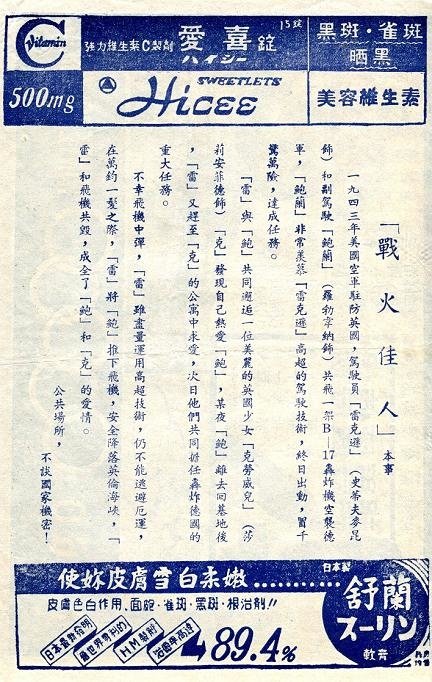 Vitamin C
500mg
強力維生素C製劑 愛喜錠 15錠
ハイシー
SWEETLETS
Hicee
黑斑・雀斑
晒黑
美容維生素
「戰火佳人」本事
一九四三年美國空軍駐防英國，駕駛員「雷克遜」（史蒂夫麥昆
飾）和副駕駛「鮑蘭」（羅勃韋納飾）共飛一架B—17轟炸機空襲德
軍，「鮑蘭」非常羨慕「雷克遜」高超的駕駛技術，終日出動，冒千
驚萬險，達成任務。
「雷」與「鮑」共同邂逅一位美麗的英國少女「克勞威兒」（莎
莉安菲德飾）「克」發現自己熱愛「鮑」，某夜「鮑」離去回基地後
，「雷」又趕至「克」的公寓中求愛，次日他們共同擔任轟炸德國的
重大任務。
不幸飛機中彈，「雷」雖盡量運用高超技術，仍不能逃避厄運，
在萬鈞一髮之際，「雷」將「鮑」推下飛機，安全降落英倫海峽，「
雷」和飛機共毀，成全了「鮑」和「克」的愛情。
公共場所，
不談國家機密！
使妳皮膚雪白柔嫩…………
皮膚色白作用、面皰・雀斑・黑斑・根治劑!!
日本最新發明
最世界專利的
HM製劑
治癒率高達
89.4%
日本製
舒蘭
スーリン
軟膏